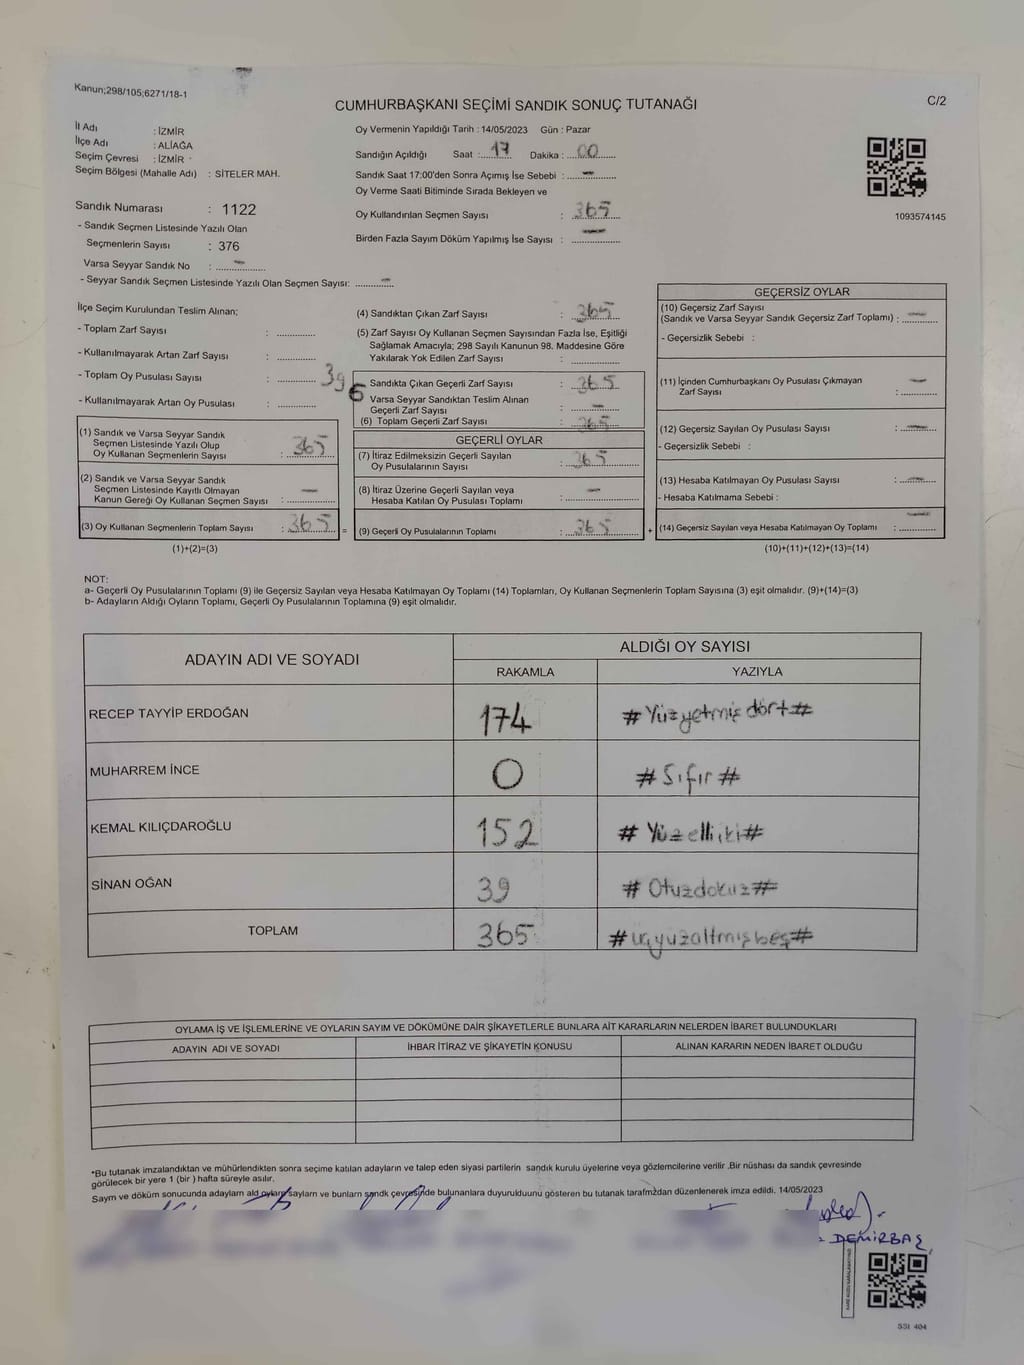 Kanun;298/105;6271/18-1
CUMHURBAŞKANI SEÇİMİ SANDIK SONUÇ TUTANAĞI
C/2
İl Adı : İZMİR
İlçe Adı : ALİAĞA
Seçim Çevresi : İZMİR
Seçim Bölgesi (Mahalle Adı) : SİTELER MAH.
Sandık Numarası : 1122
- Sandık Seçmen Listesinde Yazılı Olan
Seçmenlerin Sayısı : 376
Varsa Seyyar Sandık No : –
- Seyyar Sandık Seçmen Listesinde Yazılı Olan Seçmen Sayısı: –
Oy Vermenin Yapıldığı Tarih : 14/05/2023 Gün : Pazar
Sandığın Açıldığı Saat : 17 Dakika : 00
Sandık Saat 17:00'den Sonra Açımış İse Sebebi : –
Oy Verme Saati Bitiminde Sırada Bekleyen ve
Oy Kullandırılan Seçmen Sayısı : 365
Birden Fazla Sayım Döküm Yapılmış İse Sayısı : –
1093574145
İlçe Seçim Kurulundan Teslim Alınan;
- Toplam Zarf Sayısı :
- Kullanılmayarak Artan Zarf Sayısı :
- Toplam Oy Pusulası Sayısı : 396
- Kullanılmayarak Artan Oy Pusulası :
(1) Sandık ve Varsa Seyyar Sandık
Seçmen Listesinde Yazılı Olup
Oy Kullanan Seçmenlerin Sayısı : 365
(2) Sandık ve Varsa Seyyar Sandık
Seçmen Listesinde Kayıtlı Olmayan
Kanun Gereği Oy Kullanan Seçmen Sayısı : –
(3) Oy Kullanan Seçmenlerin Toplam Sayısı : 365 =
(1)+(2)=(3)
(4) Sandıktan Çıkan Zarf Sayısı : 365
(5) Zarf Sayısı Oy Kullanan Seçmen Sayısından Fazla İse, Eşitliği
Sağlamak Amacıyla; 298 Sayılı Kanunun 98. Maddesine Göre
Yakılarak Yok Edilen Zarf Sayısı :
Sandıkta Çıkan Geçerli Zarf Sayısı : 365
Varsa Seyyar Sandıktan Teslim Alınan
Geçerli Zarf Sayısı : –
(6) Toplam Geçerli Zarf Sayısı : 365
GEÇERLİ OYLAR
(7) İtiraz Edilmeksizin Geçerli Sayılan
Oy Pusulalarının Sayısı : 365
(8) İtiraz Üzerine Geçerli Sayılan veya
Hesaba Katılan Oy Pusulası Toplamı : –
(9) Geçerli Oy Pusulalarının Toplamı : 365 +
GEÇERSİZ OYLAR
(10) Geçersiz Zarf Sayısı
(Sandık ve Varsa Seyyar Sandık Geçersiz Zarf Toplamı) : –
- Geçersizlik Sebebi :
(11) İçinden Cumhurbaşkanı Oy Pusulası Çıkmayan
Zarf Sayısı : –
(12) Geçersiz Sayılan Oy Pusulası Sayısı : –
- Geçersizlik Sebebi :
(13) Hesaba Katılmayan Oy Pusulası Sayısı : –
- Hesaba Katılmama Sebebi :
(14) Geçersiz Sayılan veya Hesaba Katılmayan Oy Toplamı : –
(10)+(11)+(12)+(13)=(14)
NOT:
a- Geçerli Oy Pusulalarının Toplamı (9) ile Geçersiz Sayılan veya Hesaba Katılmayan Oy Toplamı (14) Toplamları, Oy Kullanan Seçmenlerin Toplam Sayısına (3) eşit olmalıdır. (9)+(14)=(3)
b- Adayların Aldığı Oyların Toplamı, Geçerli Oy Pusulalarının Toplamına (9) eşit olmalıdır.
ADAYIN ADI VE SOYADI
ALDIĞI OY SAYISI
RAKAMLA YAZIYLA
RECEP TAYYİP ERDOĞAN 174 #Yüzyetmişdört#
MUHARREM İNCE 0 #Sıfır#
KEMAL KILIÇDAROĞLU 152 #Yüzelliiki#
SİNAN OĞAN 39 #Otuzdokuz#
TOPLAM 365 #üçyüzaltmışbeş#
OYLAMA İŞ VE İŞLEMLERİNE VE OYLARIN SAYIM VE DÖKÜMÜNE DAİR ŞİKAYETLERLE BUNLARA AİT KARARLARIN NELERDEN İBARET BULUNDUKLARI
ADAYIN ADI VE SOYADI İHBAR İTİRAZ VE ŞİKAYETİN KONUSU ALINAN KARARIN NEDEN İBARET OLDUĞU
*Bu tutanak imzalandıktan ve mühürlendikten sonra seçime katılan adayların ve talep eden siyasi partilerin sandık kurulu üyelerine veya gözlemcilerine verilir .Bir nüshası da sandık çevresinde
görülecek bir yere 1 (bir ) hafta süreyle asılır.
Sayım ve döküm sonucunda adayların aldı oyların sayların ve bunların sandk çevresinde bulunanlara duyurulduunu gösteren bu tutanak tarafmzdan düzenlenerek imza edildi. 14/05/2023
DEMİRBAŞ
SSI 404